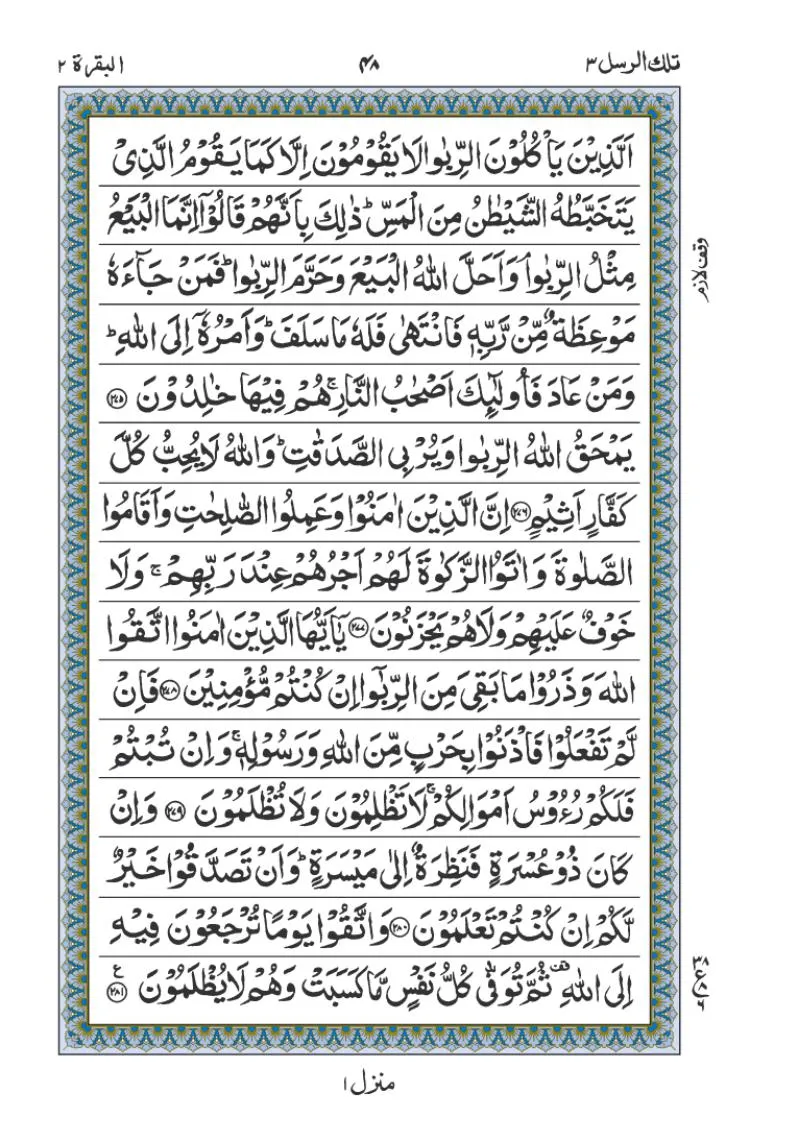 تلك الرسل ٣
٤٨
البقرة ٢
اَلَّذِيْنَ يَاْكُلُوْنَ الرِّبٰوا لَا يَقُوْمُوْنَ اِلَّا كَمَا يَقُوْمُ الَّذِىْ
يَتَخَبَّطُهُ الشَّيْطٰنُ مِنَ الْمَسِّ ؕ ذٰلِكَ بِاَنَّهُمْ قَالُوْۤا اِنَّمَا الْبَيْعُ
مِثْلُ الرِّبٰوا ۘ وَاَحَلَّ اللّٰهُ الْبَيْعَ وَحَرَّمَ الرِّبٰوا ؕ فَمَنْ جَآءَهٗ
وقف لازم
مَوْعِظَةٌ مِّنْ رَّبِّهٖ فَانْتَهٰى فَلَهٗ مَا سَلَفَ ؕ وَاَمْرُهٗۤ اِلَى اللّٰهِ ؕ
وَمَنْ عَادَ فَاُولٰٓئِكَ اَصْحٰبُ النَّارِ ۚ هُمْ فِيْهَا خٰلِدُوْنَ ﴿۲۷۵﴾
يَمْحَقُ اللّٰهُ الرِّبٰوا وَيُرْبِى الصَّدَقٰتِ ؕ وَاللّٰهُ لَا يُحِبُّ كُلَّ
كَفَّارٍ اَثِيْمٍ ﴿۲۷۶﴾ اِنَّ الَّذِيْنَ اٰمَنُوْا وَعَمِلُوا الصّٰلِحٰتِ وَاَقَامُوا
الصَّلٰوةَ وَاٰتَوُا الزَّكٰوةَ لَهُمْ اَجْرُهُمْ عِنْدَ رَبِّهِمْ ۚ وَلَا
خَوْفٌ عَلَيْهِمْ وَلَا هُمْ يَحْزَنُوْنَ ﴿۲۷۷﴾ يٰۤاَيُّهَا الَّذِيْنَ اٰمَنُوا اتَّقُوا
اللّٰهَ وَذَرُوْا مَا بَقِىَ مِنَ الرِّبٰۤوا اِنْ كُنْتُمْ مُّؤْمِنِيْنَ ﴿۲۷۸﴾ فَاِنْ
لَّمْ تَفْعَلُوْا فَاْذَنُوْا بِحَرْبٍ مِّنَ اللّٰهِ وَرَسُوْلِهٖ ۚ وَاِنْ تُبْتُمْ
فَلَكُمْ رُءُوْسُ اَمْوَالِكُمْ ۚ لَا تَظْلِمُوْنَ وَلَا تُظْلَمُوْنَ ﴿۲۷۹﴾ وَاِنْ
كَانَ ذُوْ عُسْرَةٍ فَنَظِرَةٌ اِلٰى مَيْسَرَةٍ ؕ وَاَنْ تَصَدَّقُوْا خَيْرٌ
لَّكُمْ اِنْ كُنْتُمْ تَعْلَمُوْنَ ﴿۲۸۰﴾ وَاتَّقُوْا يَوْمًا تُرْجَعُوْنَ فِيْهِ
اِلَى اللّٰهِ ۗ ثُمَّ تُوَفّٰى كُلُّ نَفْسٍ مَّا كَسَبَتْ وَهُمْ لَا يُظْلَمُوْنَ ﴿۲۸۱﴾ ع
منزل ۱